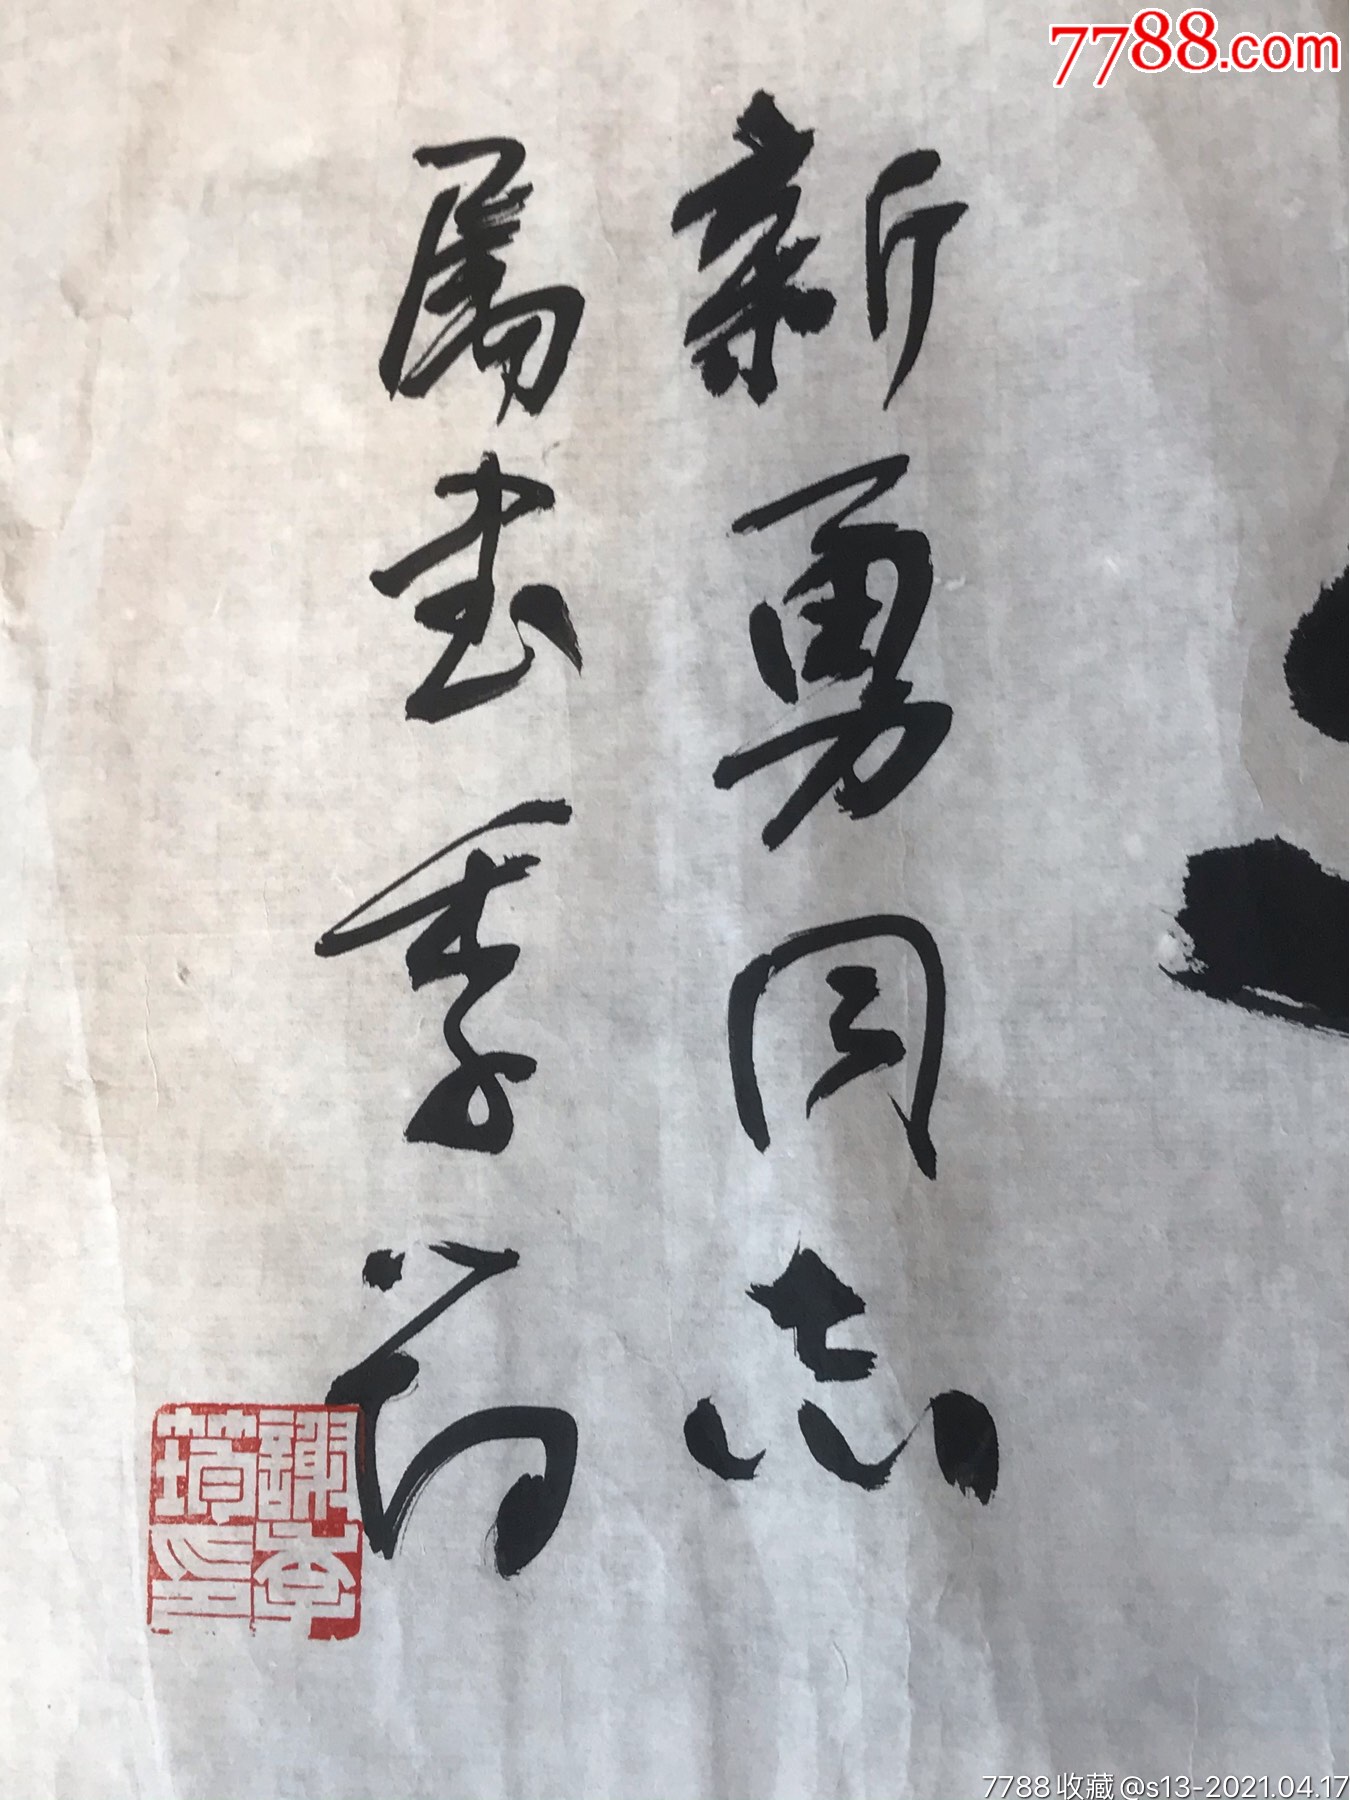 7788.com
新勇同志
属書季筠
謝季
筠印
7788收藏@s13-2021.04.17